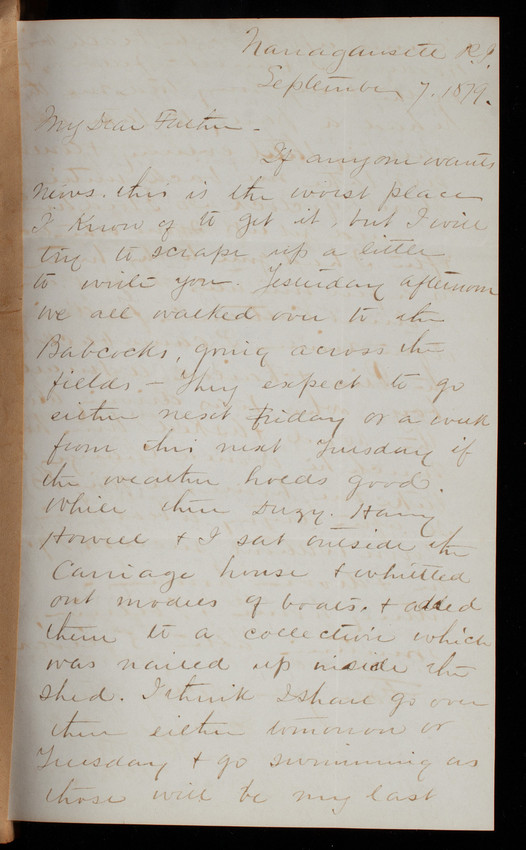 Narragansett R.I.
September 7. 1879.
My Dear Father -
If anyone wants
news. this is the worst place
I know of to get it, but I will
try to scrape up a little
to write you. Yesterday afternoon
we all walked over to the
Babcocks, going across the
fields - They expect to go
either next Friday or a week
from this next Tuesday if
the weather holds good.
While there Harry
Howell & I sat outside the
Carriage house & whittled
out models of boats. & added
them to a collection which
was nailed up inside the
shed. I think I shall go over
there either tomorrow or
Tuesday & go swimming as
those will be my last